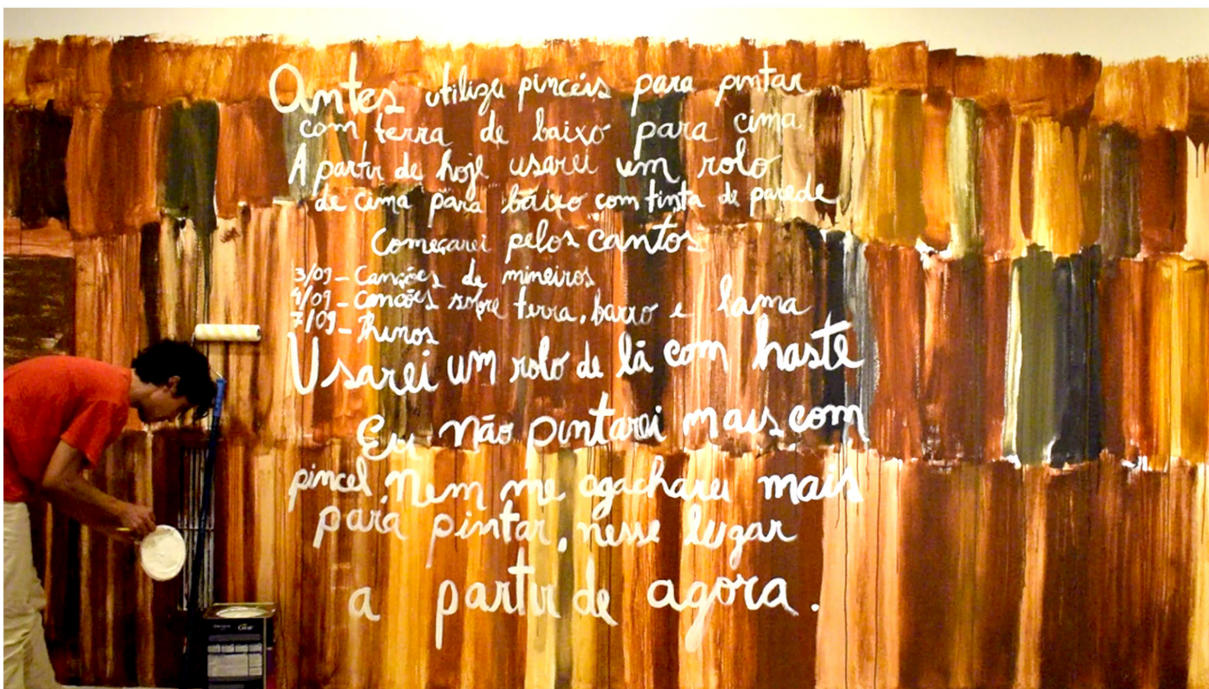 Antes utilizei pincéis para pintar
com terra de baixo para cima
A partir de hoje usarei um rolo
de cima para baixo com tinta de parede
Começarei pelos cantos
3/09 - Canções de mineiros
4/09 - Canções sobre terra, barro e lama
7/09 - Hinos
Usarei um rolo de lã com haste
Eu não pintarei mais com
pincel, nem me agacharei mais
para pintar, nesse lugar
a partir de agora.